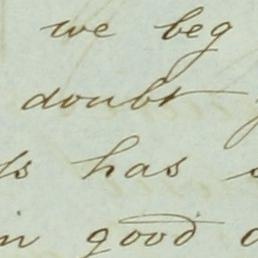 we beg
doubt
has
in good